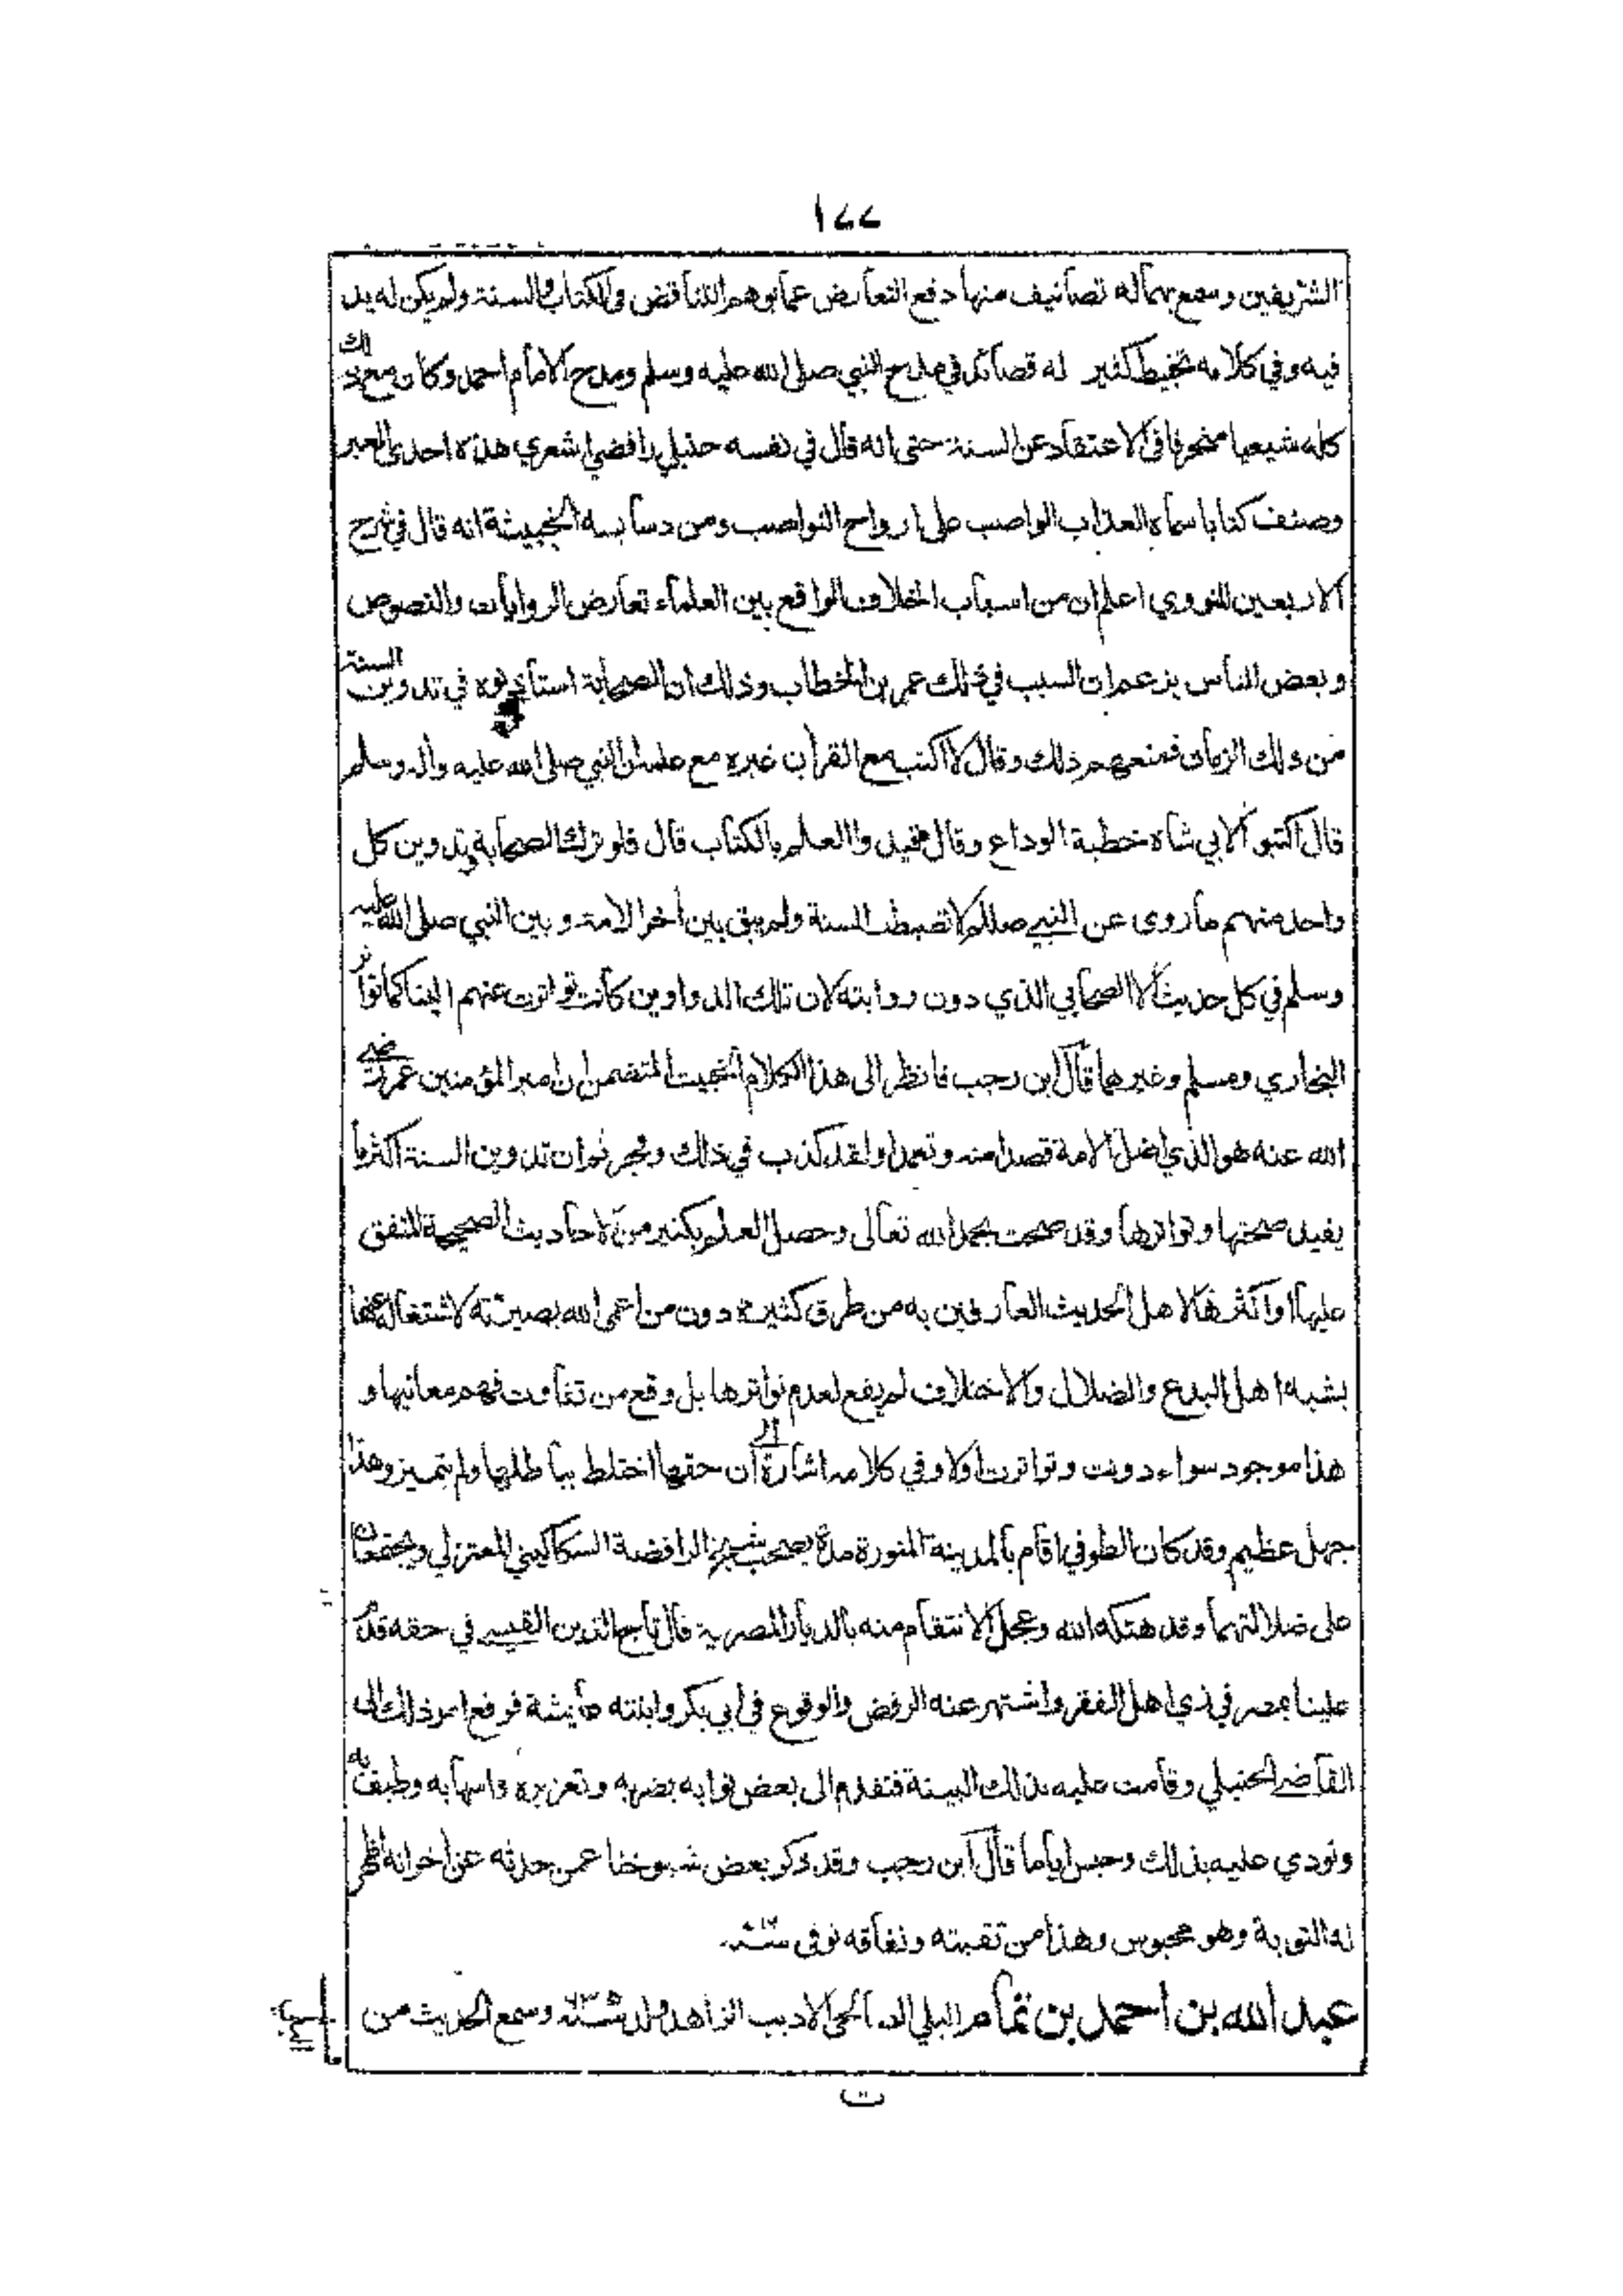 ١٧٧
الشريفين وسمع بهما له تصانيف منها دفع التعارض عما يوهم التناقض في الكتاب والسنة ولم يكن له يد
فيه وفي كلامه تخبيط كثير له قصائد في مدح النبي صلى الله عليه وسلم ومدح الامام احمد وكان مع ذلك
كله شيعيا منحرفا في الاعتقاد عن السنة حتى انه قال في نفسه حنبلي رافضي اشعري هذه احدى العبر
وصنف كتابا سماه العذاب الواصب على ارواح النواصب ومن دسايسه الخبيثة انه قال في شرح
الاربعين للنووي اعلم ان من اسباب الخلاف الواقع بين العلماء تعارض الروايات والنصوص
وبعض الناس يزعم ان السبب في ذلك عمر بن الخطاب وذلك ان الصحابة استأذنوه في تدوين السنة
من ذلك الزمان فمنعهم ذلك وقال لا اكتب مع القرآن غيره مع علمه ان النبي صلى الله عليه واله وسلم
قال اكتبوا لابي شاه خطبة الوداع وقال قيدوا العلم بالكتاب قال فلو ترك الصحابة يدون كل
واحد منهم ما روى عن النبي صللم لانضبطت السنة ولم يبق بين آخر الامة وبين النبي صلى الله عليه
وسلم في كل حديث الا الصحابي الذي دون روايته لان تلك الدواوين كانت تواترت عنهم الينا كما تواتر
البخاري ومسلم وغيرهما قال ابن رجب فانظر الى هذا الكلام الخبيث المتضمن ان امير المؤمنين عمر رضي
الله عنه هو الذي اضل الامة قصدا منه وتعمدا ولقد كذب في ذلك وفجر ثم ان تدوين السنة اكثر ما
يفيد صحتها وتواترها وقد صحت بحمد الله تعالى وحصل العلم بكثير من الاحاديث الصحيحة المتفق
عليها او اكثرها لاهل الحديث العارفين به من طرق كثيرة دون من اعمى الله بصيرته لاشتغاله عنها
بشبه اهل البدع والضلال والاختلاف لم يقع لعدم تواترها بل وقع من تفاوت فهم معانيها و
هذا موجود سواء دونت وتواترت اولا وفي كلامه اشارة الى ان حقها اختلط بباطلها ولم يتميز وهذا
جهل عظيم وقد كان الطوفي اقام بالمدينة المنورة مدة يصحب شيخ الرافضة السكاكيني المعتزلي ويجتمعان
على ضلالتهما وقد هتكه الله وعجل الانتقام منه بالديار المصرية قال تاج الدين القيسي في حقه قدم
علينا بمصر في زي اهل الفقر واشتهر عنه الرفض والوقوع في ابي بكر وابنته عائشة فرفع امر ذلك الى
القاضي الحنبلي وقامت عليه بذلك البينة فتقدم الى بعض نوابه بضربه وتعزيره واشهاره وطيف به
ونودي عليه بذلك وحبس اياما قال ابن رجب وقد ذكر بعض شيوخنا عمن حدثه عن اخر انه اظهر
له التوبة وهو محبوس وهذا من تقيته ونفاقه توفي
عبد الله بن احمد بن تمام البلي الصالحي الاديب الزاهد ولد سنة ٦٣٥ وسمع الحديث من
ت